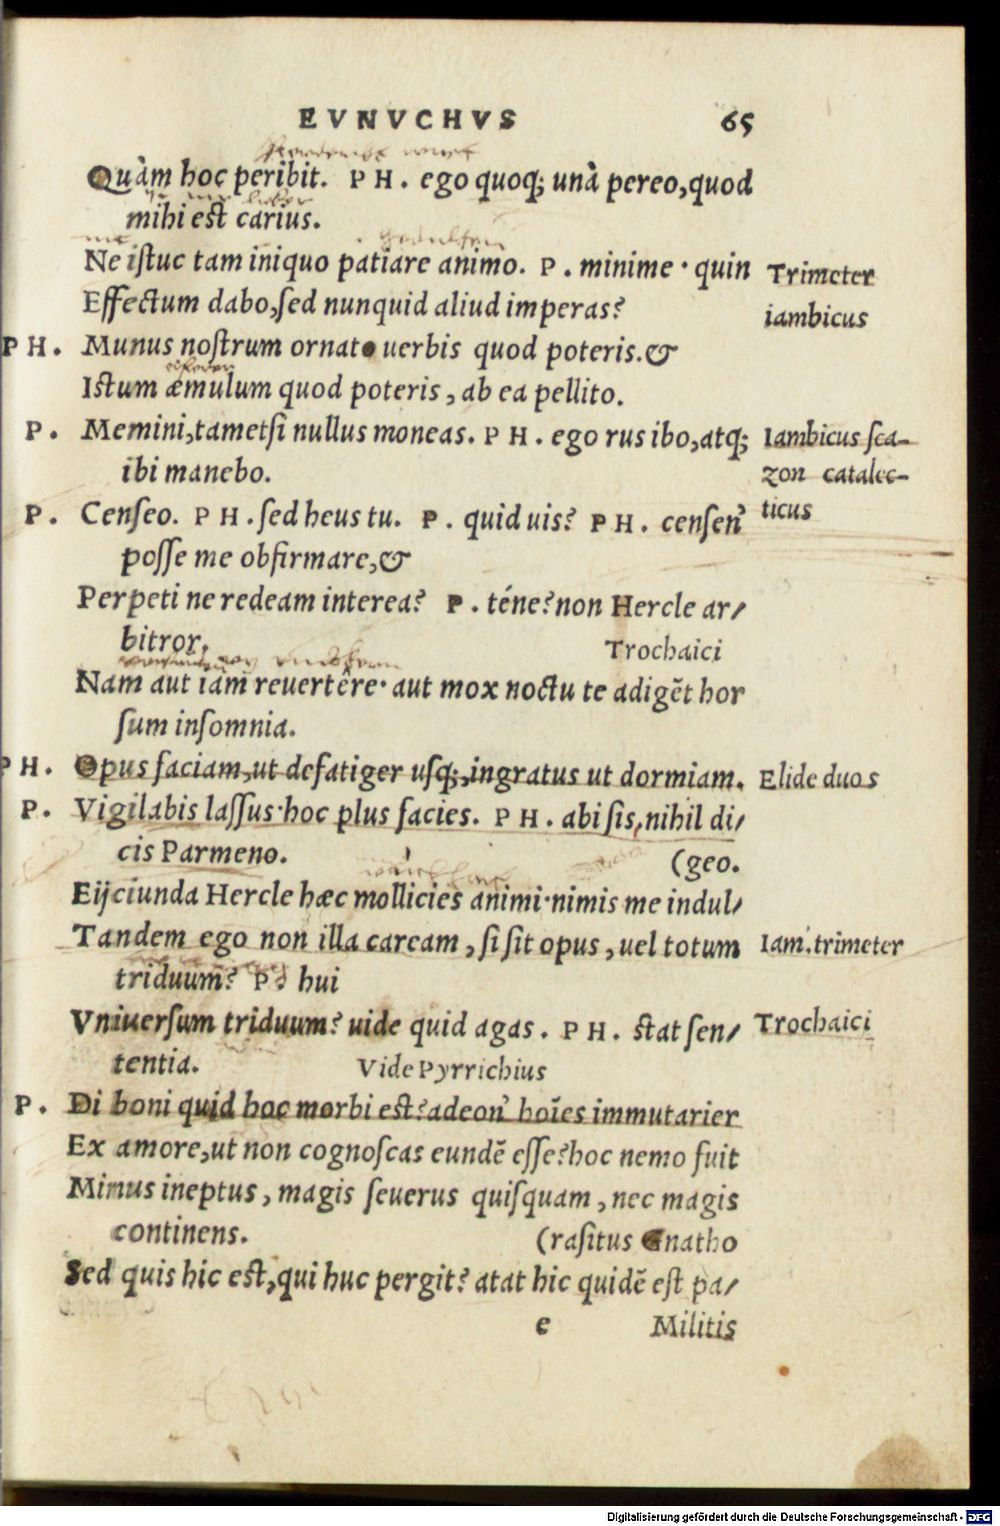 EVNVCHVS 65
Quàm hoc peribit. PH. ego quoq; unà pereo, quod
mihi est carius.
Ne istuc tam iniquo patiare animo. P. minime · quin Trimeter
Effectum dabo, sed nunquid aliud imperas? iambicus
PH. Munus nostrum ornato uerbis quod poteris. &
Istum æmulum quod poteris, ab ea pellito.
P. Memini, tametsi nullus moneas. PH. ego rus ibo, atq; Iambicus sca-
ibi manebo. zon catalec-
P. Censeo. PH. sed heus tu. P. quid uis? PH. censen' ticus
posse me obfirmare, &
Perpeti ne redeam interea? P. téne? non Hercle ar/
bitror. Trochaici
Nam aut iam reuertêre· aut mox noctu te adigẽt hor
sum insomnia.
PH. Opus faciam, ut defatiger usq;, ingratus ut dormiam. Elide duos
P. Vigilabis lassus· hoc plus facies. PH. abi sis, nihil di/
cis Parmeno. (geo.
Eijciunda Hercle hæc mollicies animi· nimis me indul/
Tandem ego non illa caream, si sit opus, uel totum Iam. trimeter
triduum? P. hui
Vniuersum triduum? uide quid agas. PH. stat sen/ Trochaici
tentia. Vide Pyrrichius
P. Di boni quid hoc morbi est? adeon' hoı̃es immutarier
Ex amore, ut non cognoscas eundẽ esse? hoc nemo fuit
Minus ineptus, magis seuerus quisquam, nec magis
continens. (rasitus Gnatho
Sed quis hic est, qui huc pergit? atat hic quidẽ est pa/
e Militis
Digitalisierung gefördert durch die Deutsche Forschungsgemeinschaft - DFG